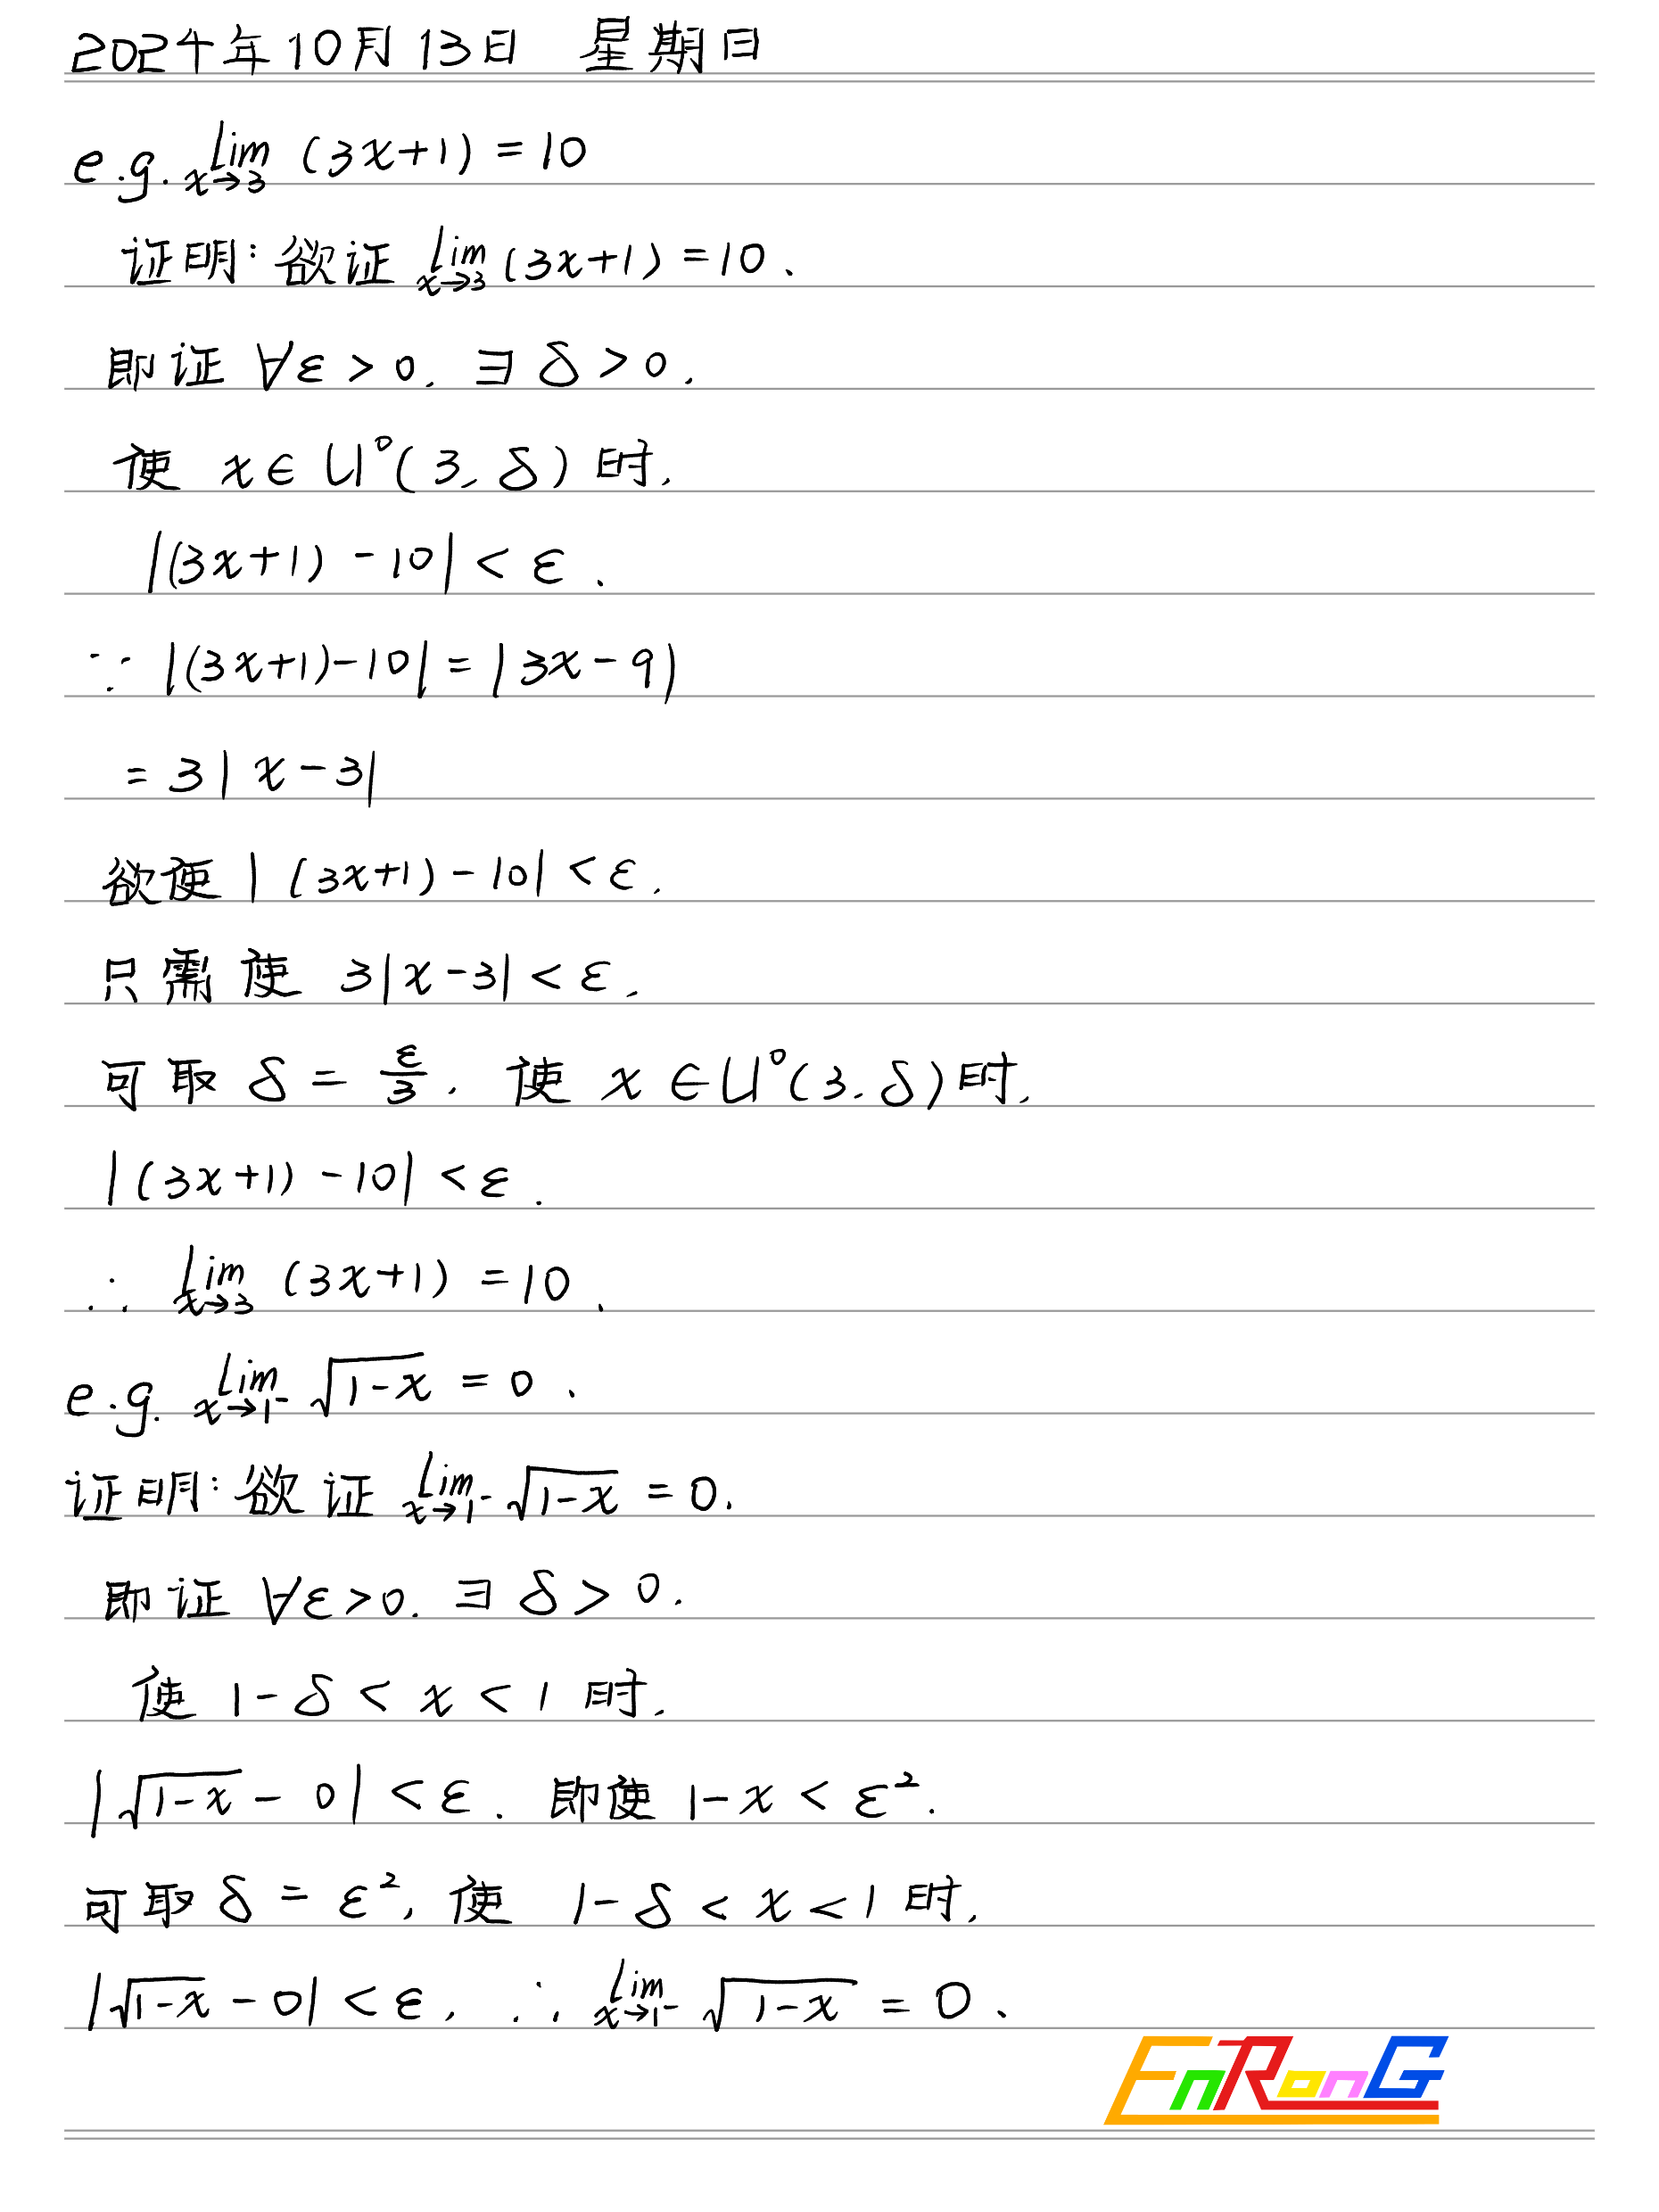 2024年10月13日 星期日
e.g. lim x→3 (3x+1) = 10
证明: 欲证 lim x→3 (3x+1) = 10.
即证 ∀ε > 0. ∃ δ > 0.
使 x ∈ U°(3, δ) 时.
|(3x+1) - 10| < ε.
∵ |(3x+1)-10| = |3x-9|
= 3|x-3|
欲使 |(3x+1)-10| < ε.
只需使 3|x-3| < ε.
可取 δ = ε/3. 使 x ∈ U°(3. δ) 时.
|(3x+1) - 10| < ε.
∴ lim x→3 (3x+1) = 10.
e.g. lim x→1⁻ √(1-x) = 0.
证明: 欲证 lim x→1⁻ √(1-x) = 0.
即证 ∀ε > 0. ∃ δ > 0.
使 1-δ < x < 1 时.
|√(1-x) - 0| < ε. 即使 1-x < ε².
可取 δ = ε², 使 1-δ < x < 1 时.
|√(1-x) - 0| < ε. ∴ lim x→1⁻ √(1-x) = 0.
EnRonG